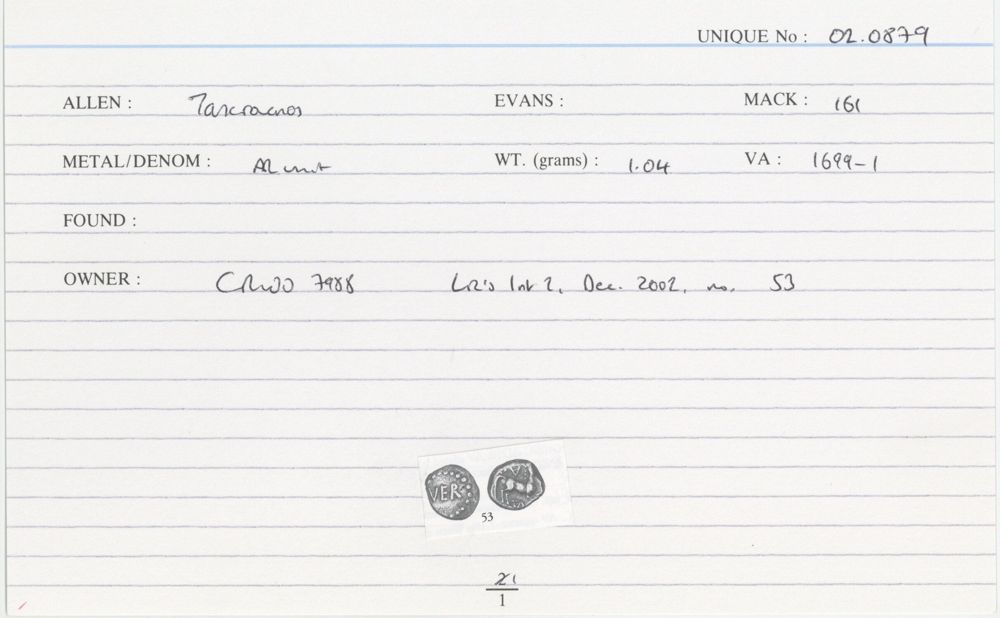 UNIQUE No : 02.0879
ALLEN : Tasciovanos EVANS : MACK : 161
METAL/DENOM : AR unit WT. (grams) : 1.04 VA : 1699-1
FOUND :
OWNER : 7988 Liz's List 2, Dec. 2002, no. 53
VER
53
21
1